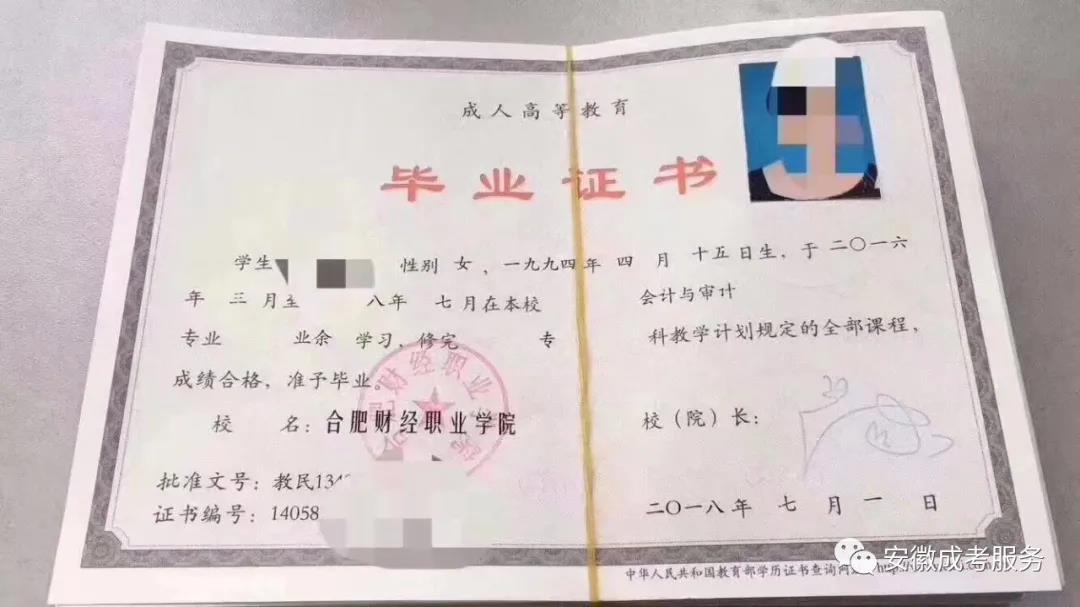 成人高等教育
毕业证书
学生 性别 女 ，一九九四年 四 月 十五日生，于 二〇一六
年 三 月至 八年 七月在本校 会计与审计
专业 业余 学习，修完 专 科教学计划规定的全部课程，
成绩合格，准予毕业。
财经职业
校 名：合肥财经职业学院 校（院）长：
批准文号：教民134
证书编号：14058 二〇一八年 七 月 一 日
中华人民共和国教育部学历证书查询网
安徽成考服务